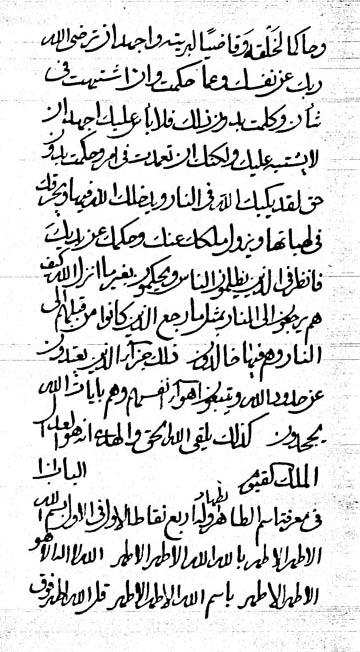 وحاكما لخلقه وقاضيا لبريته واجهد ان ترضى الله
ربك عن نفسك وعما حكمت وان اشتبهت فى
شأن وكلمت بدون ذلك فلا بأس عليك اجهد ان
لا يشتبه عليك ولكنك ان تعمدت فى امر وحكمت بدون
حق لقد يكبك الله فى النار ويدخلك الله فيها ويحرقك
فى لهباتها ويزول ملكك عنك وحكمك عن يديك
فانظر فى الذين يظلمون الناس ويحكمون بغير ما انزل الله كيف
هم يرجعون الى النار بمثل ما رجع الذين كانوا من قبلهم الى
النار وهم فيها خالدون ذلك جزآء الذين يعتدون
عن حدود الله ويتبعون اهوآء انفسهم وهم بايات الله
يجحدون كذلك يلقى الله الحق والهدى انه هو العدل
الملك الباب
فى معرفة اسم الطاهر وله اربع الاول فى الاول بسم الله
الاطهر الاطهر بالله الله الاطهر الاطهر الله لا اله الا هو
الاطهر الاطهر باسم الله الاطهر الاطهر قل الله اطهر فوق